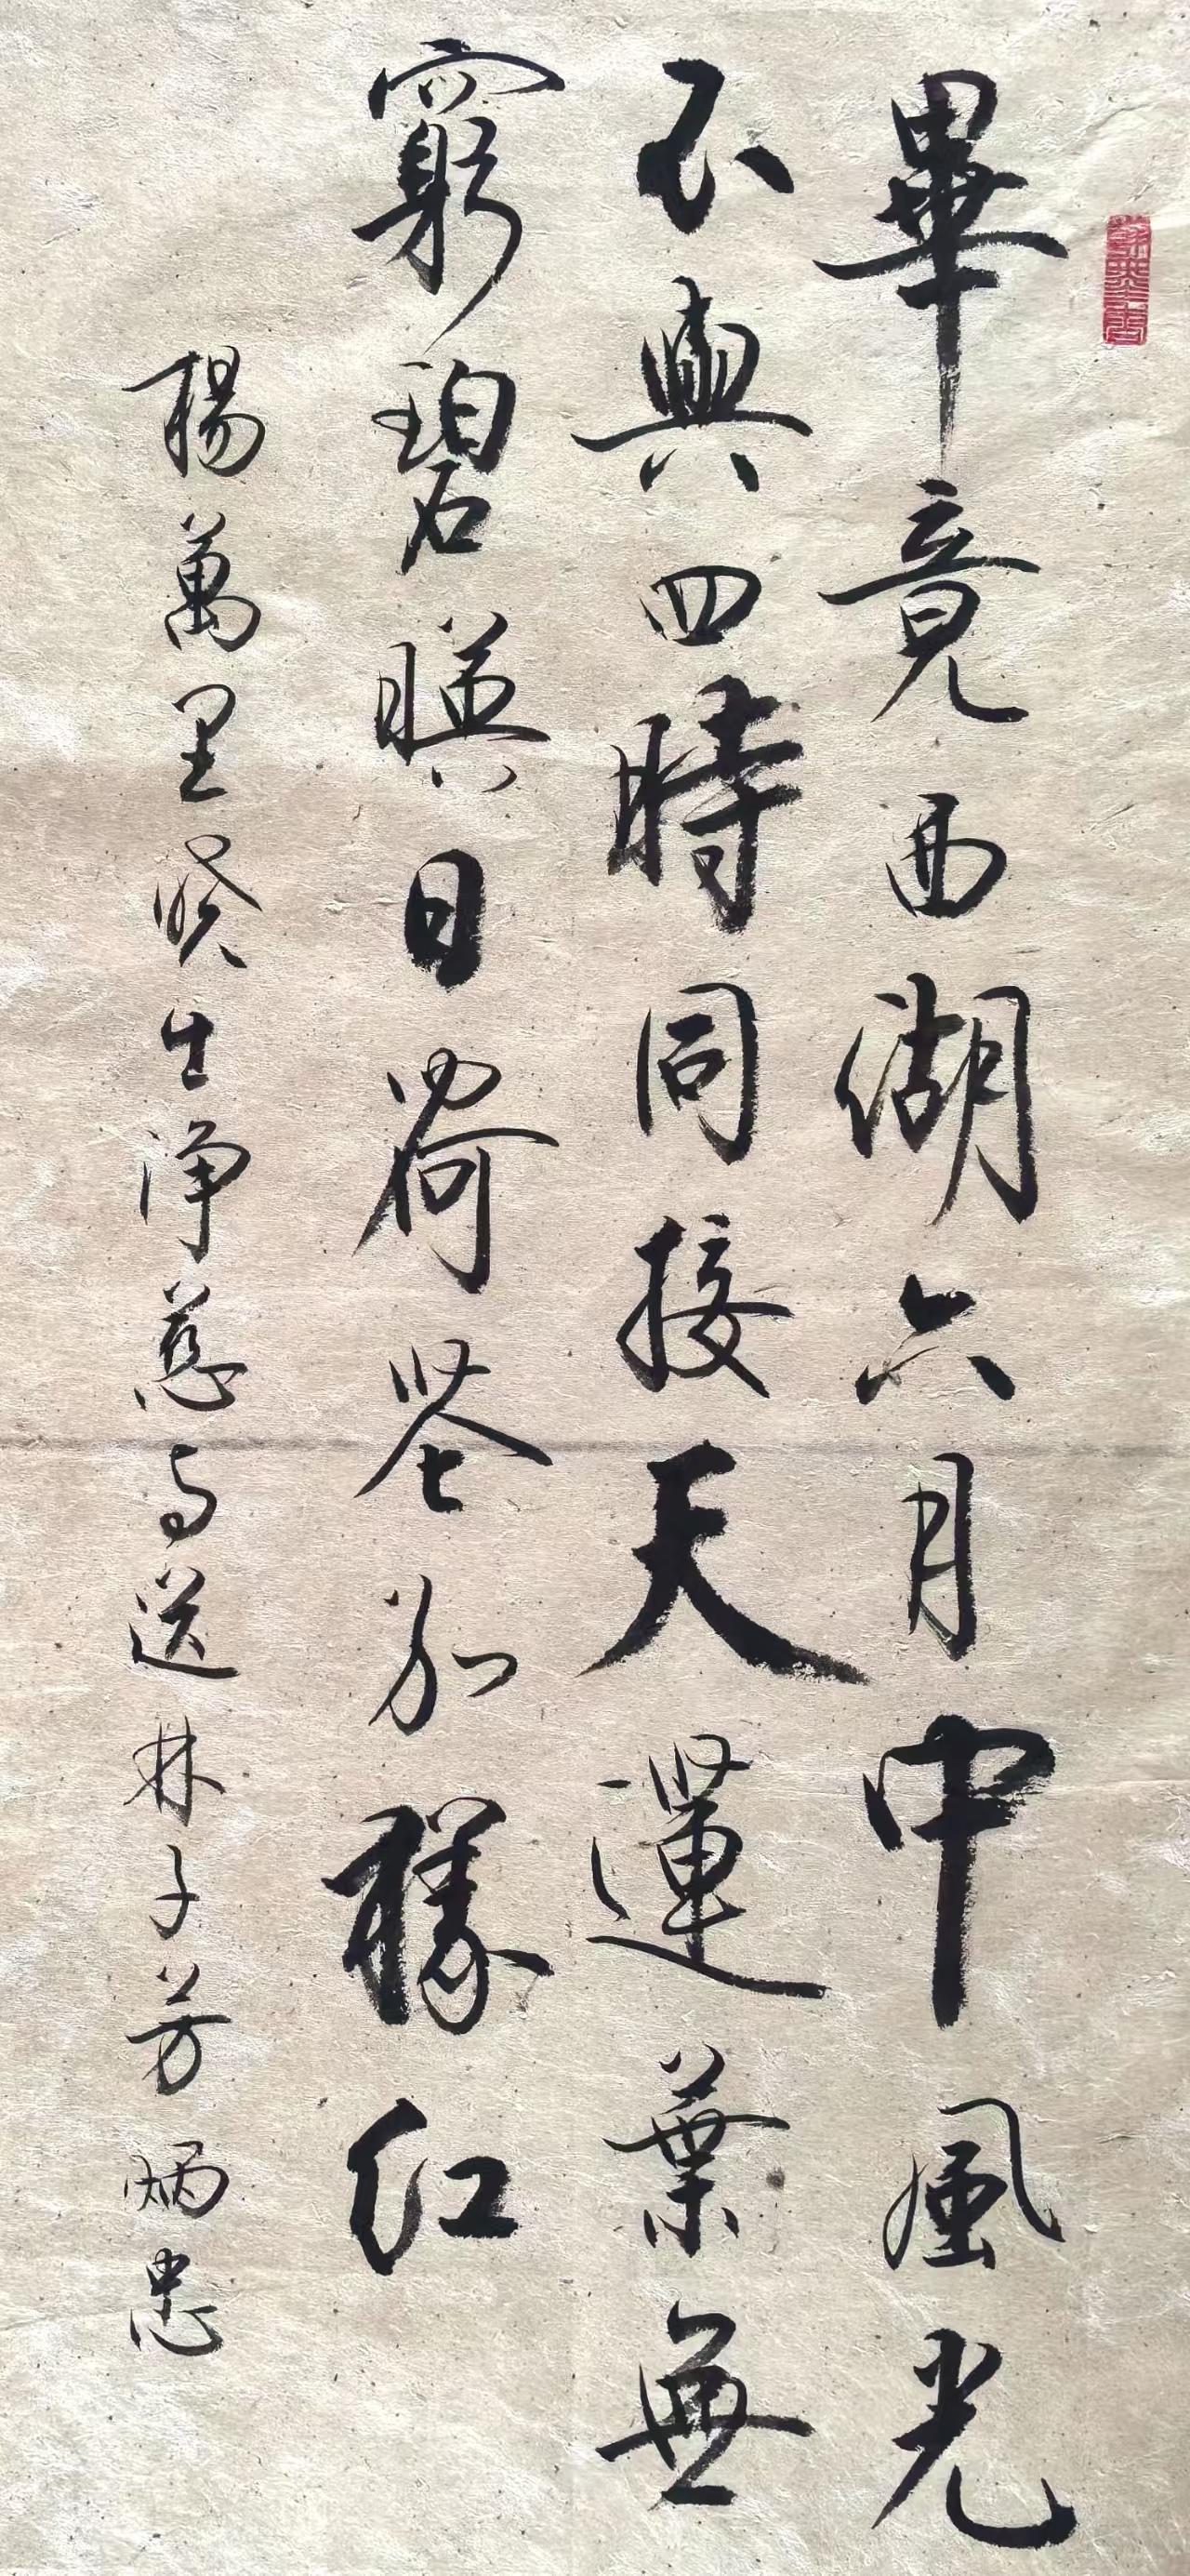 畢竟西湖六月中風光
不與四時同接天蓮葉無
窮碧暎日荷花別樣紅
楊萬里曉出净慈寺送林子芳 炳忠